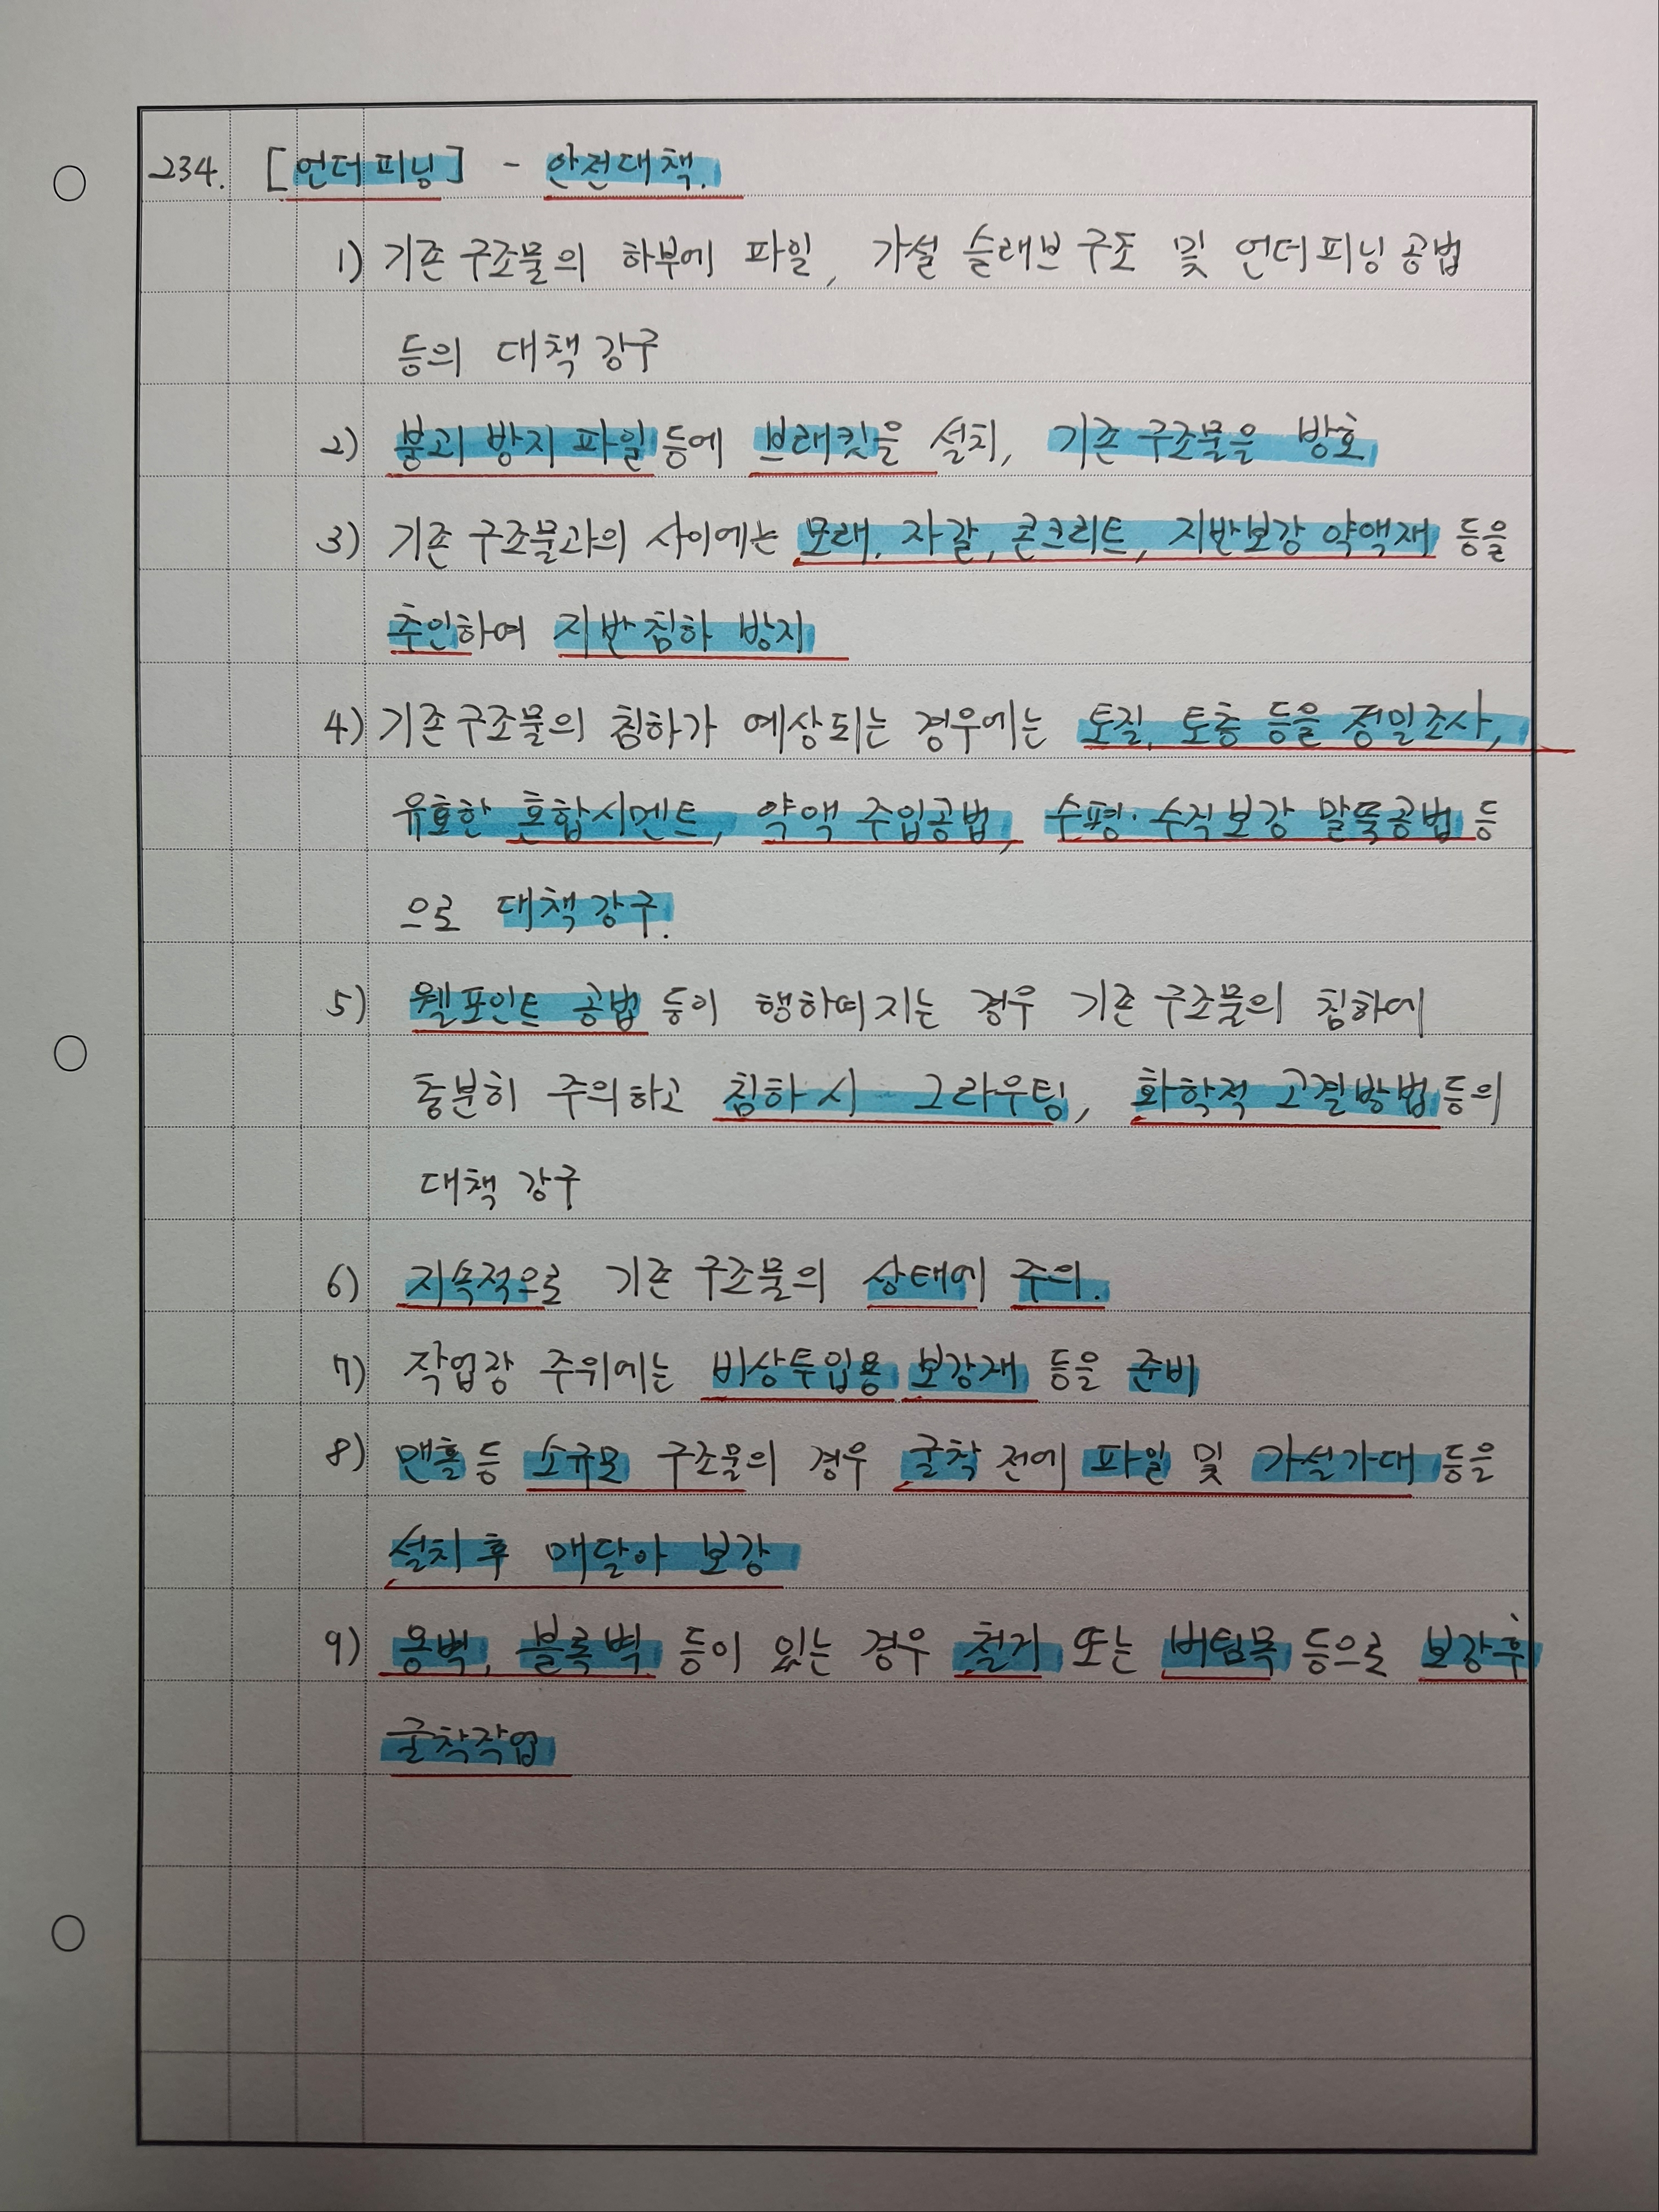 234. [언더피닝] - 안전대책.
1) 기존 구조물의 하부에 파일, 가설 슬래브 구조 및 언더피닝 공법
등의 대책 강구
2) 붕괴 방지 파일 등에 브래킷을 설치, 기존 구조물을 방호
3) 기존 구조물과의 사이에는 모래, 자갈, 콘크리트, 지반보강 약액재 등을
주인하여 지반침하 방지
4) 기존 구조물의 침하가 예상되는 경우에는 토질, 토층 등을 정밀조사,
유효한 혼합시멘트, 약액 주입공법, 수평·수직보강 말뚝공법 등
으로 대책강구.
5) 웰포인트 공법 등이 행하여지는 경우 기존 구조물의 침하에
충분히 주의하고 침하 시 그라우팅, 화학적 고결방법 등의
대책 강구
6) 지속적으로 기존 구조물의 상태에 주의.
7) 작업장 주위에는 비상투입용 보강재 등을 준비
8) 맨홀 등 소규모 구조물의 경우 굴착 전에 파일 및 가설가대 등을
설치 후 매달아 보강
9) 옹벽, 블록벽 등이 있는 경우 철거 또는 버팀목 등으로 보강 후
굴착작업